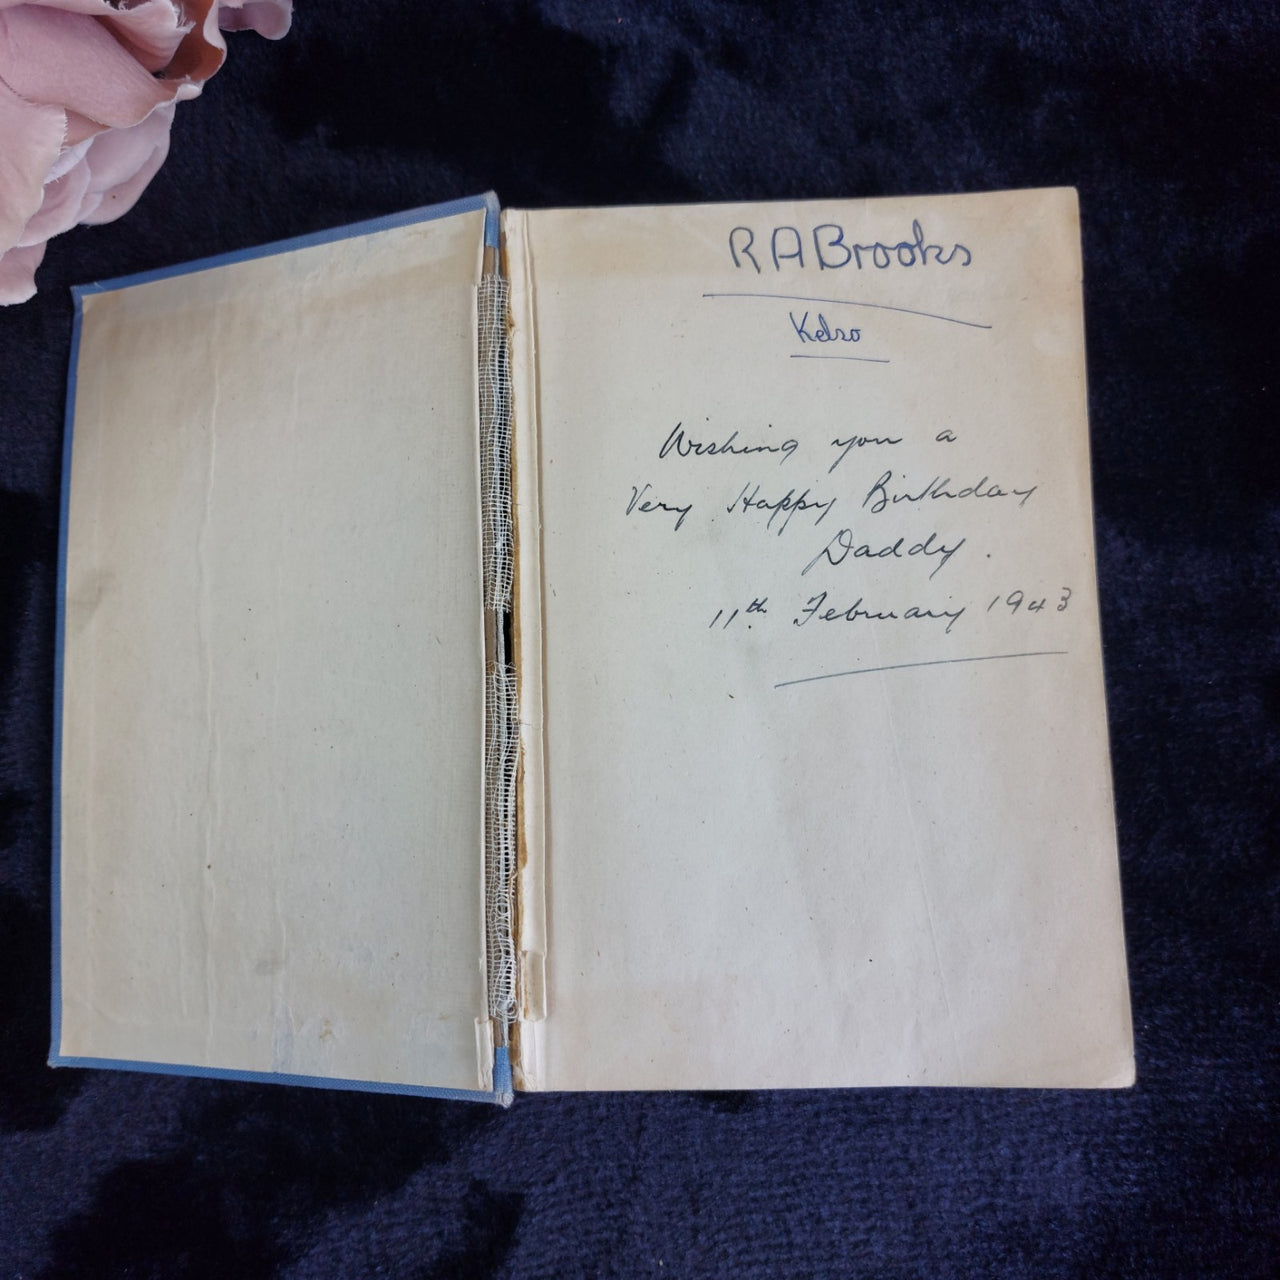 R A Brooks
Kelso
Wishing you a
Very Happy Birthday
Daddy.
11th February 1943